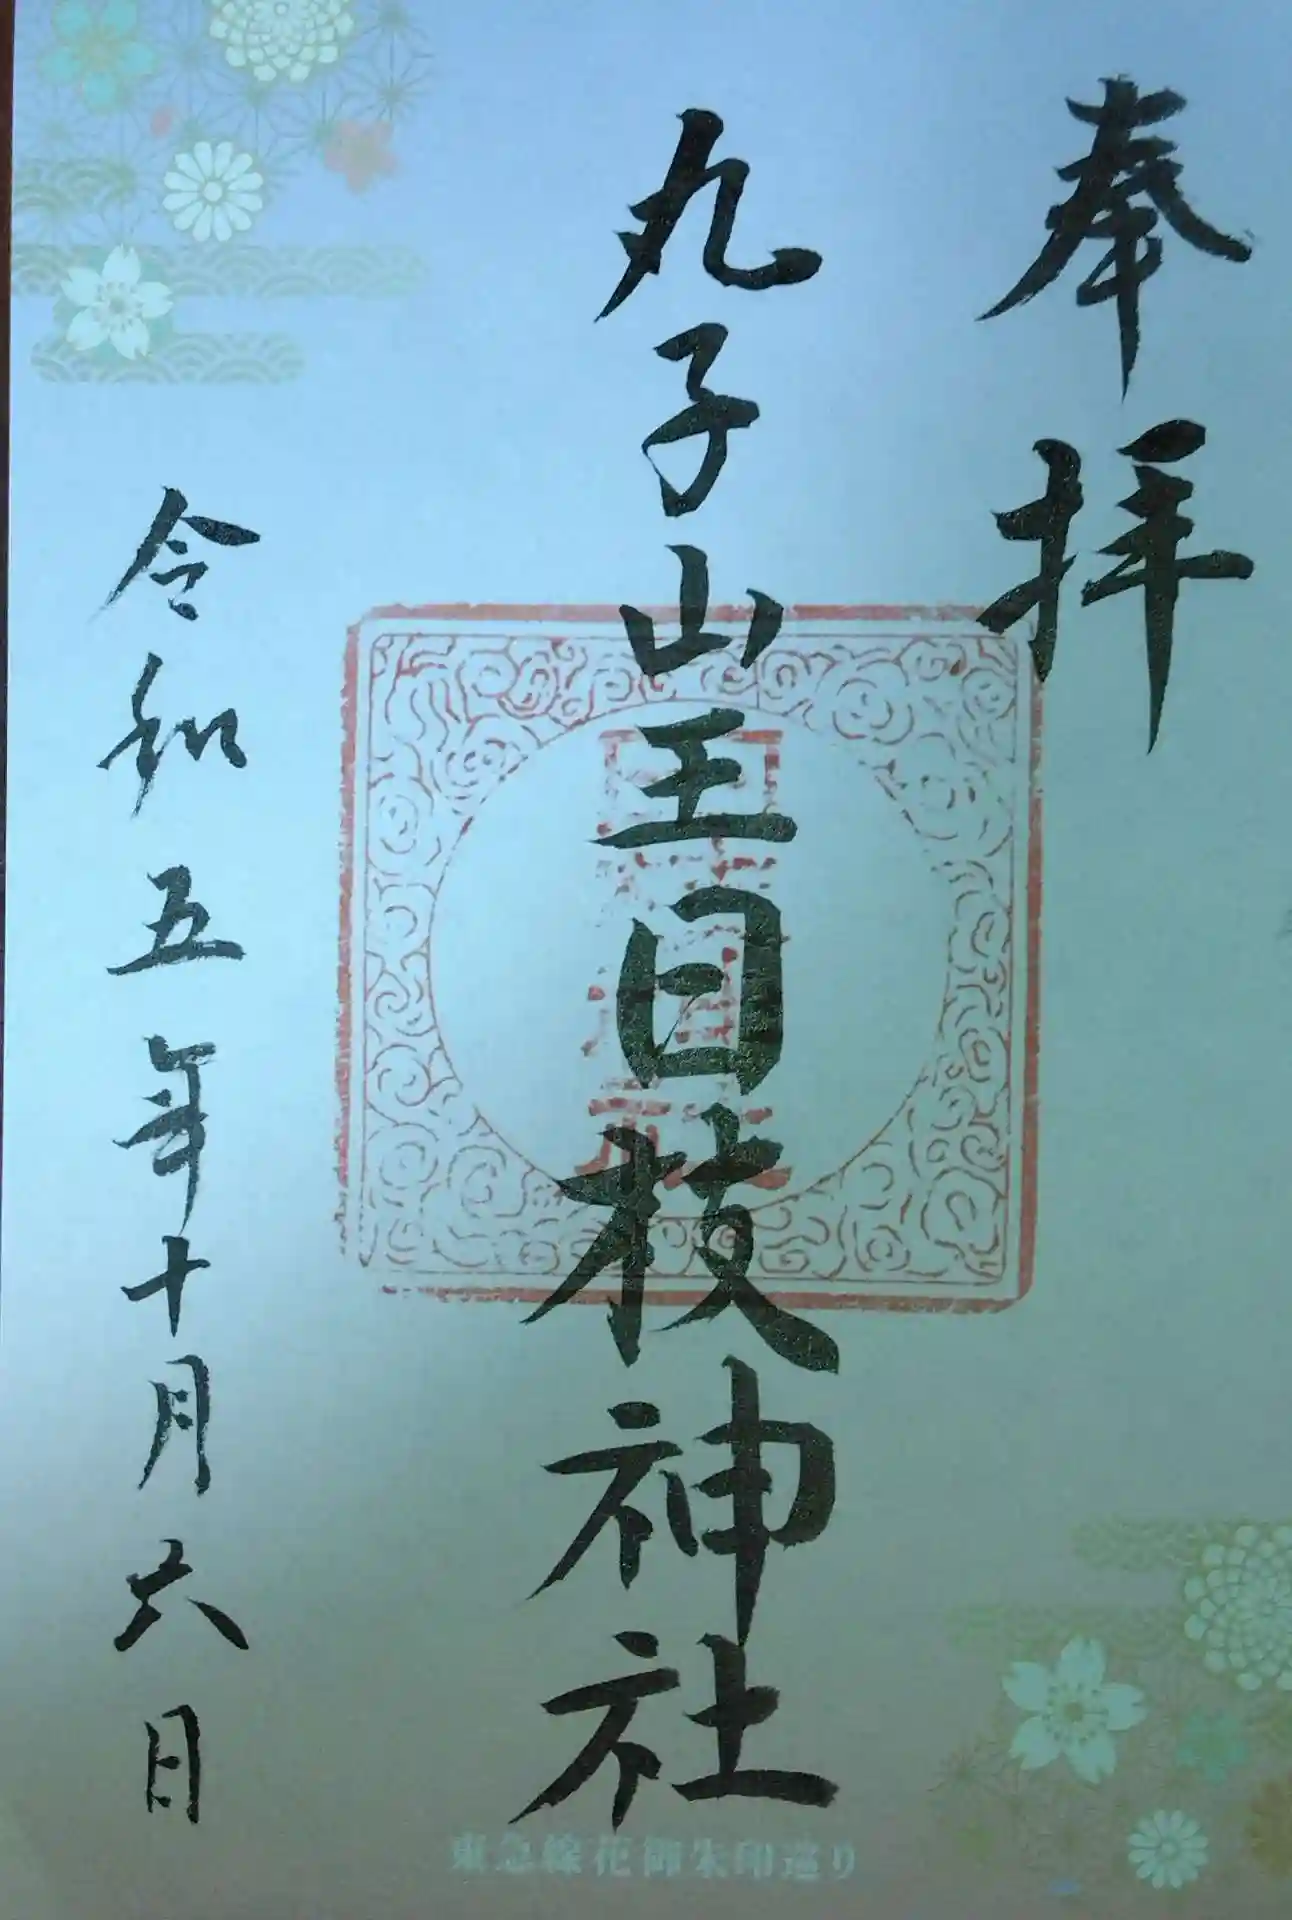 奉拝
丸子山王日枝神社
令和五年十月六日
東急線花御朱印巡り